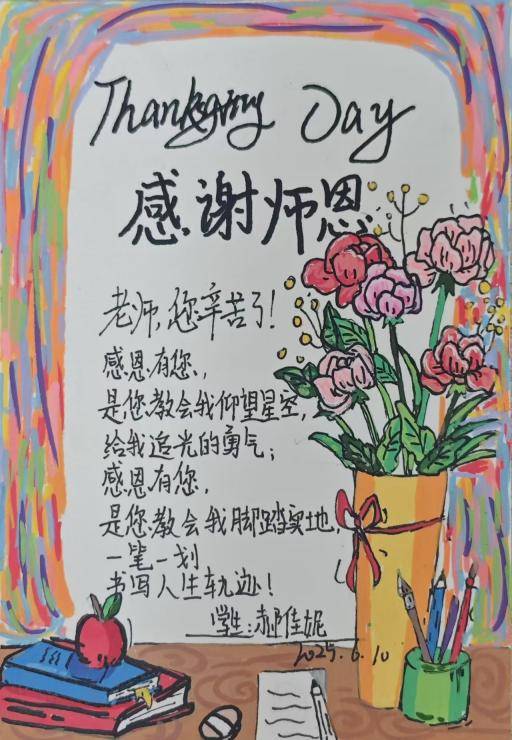 Thanksgiving Day
感谢师恩
老师,您辛苦了!
感恩有您,
是您教会我仰望星空,
给我追光的勇气;
感恩有您,
是您教会我脚踏实地,
一笔一划
书写人生轨迹!
学生:郝佳妮
2025.6.10